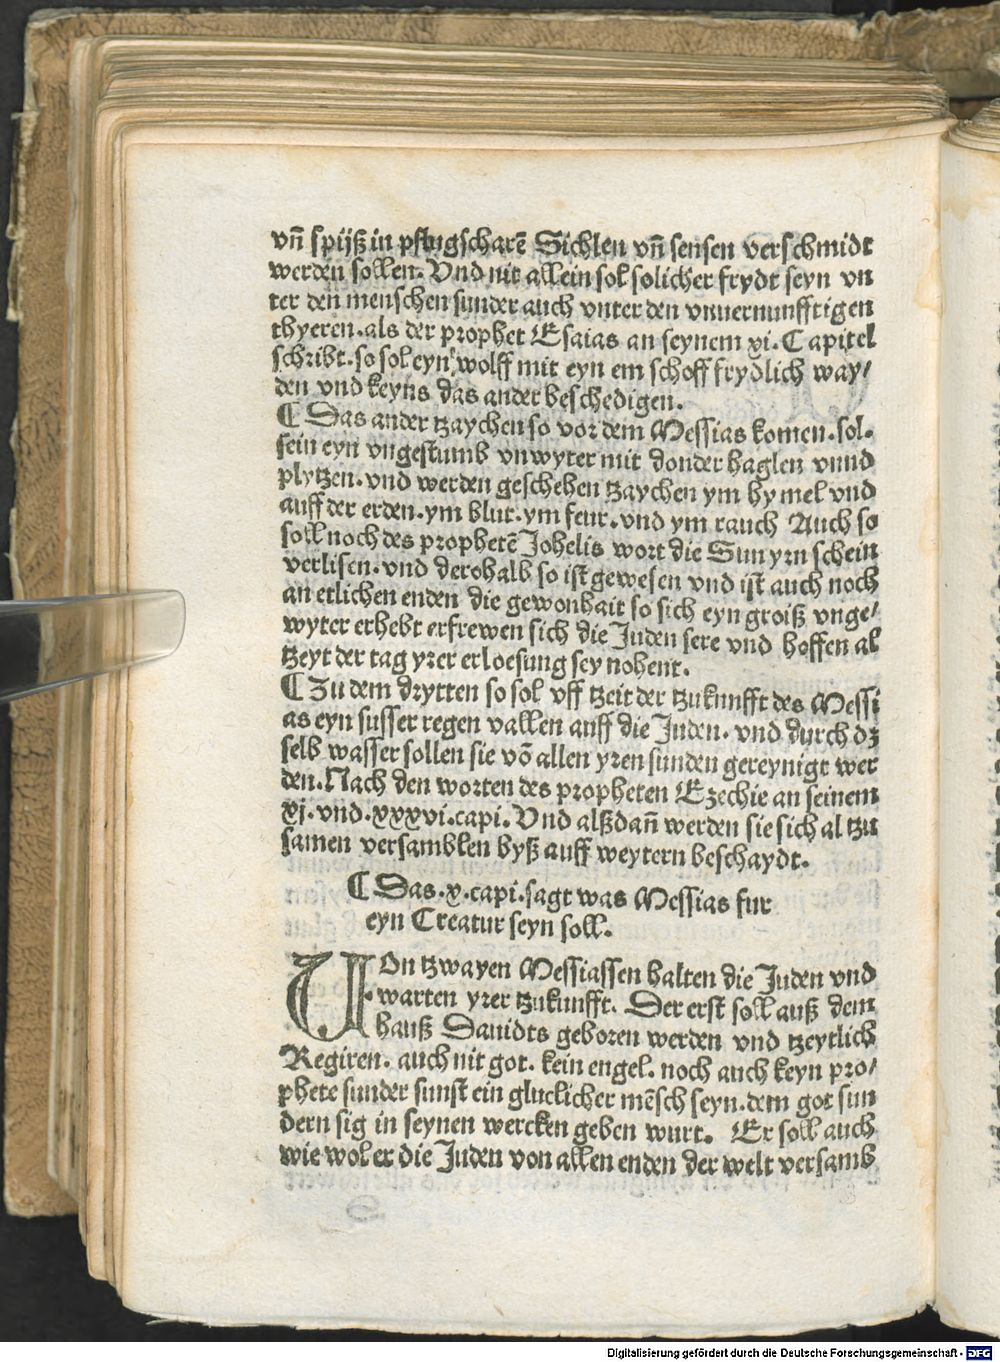 vn̄ spijß in pflugscharē Sichlen vn̄ sensen verschmidt
werden sollen. Vnd nit allein sol solicher frydt seyn vn
ter den menschen sunder auch vnter den vnuernunfftigen
thyeren. als der prophet Esaias an seynem xi. Capitel
schribt. so sol eyn wolff mit eyn em schoff frydlich way/
den vnd keyns das ander beschedigen.
¶ Das ander tzaychen so vor dem Messias komen. sol.
sein eyn vngestumb vnwyter mit donder haglen vnnd
plytzen. vnd werden geschehen tzaychen ym hymel vnd
auff der erden. ym blut. ym feur. vnd ym rauch Auch so
soll noch des prophetē Johelis wort die Sun yrn schein
verlisen. vnd derohalb so ist gewesen vnd ist auch noch
an etlichen enden die gewonhait so sich eyn groiß vnge/
wyter erhebt erfrewen sich die Juden sere vnd hoffen al
tzeyt der tag yrer erloesung sey nohent.
¶ Zu dem drytten so sol vff tzeit der tzukunfft des Messi
as eyn susser regen vallen auff die Juden. vnd durch dz
selb wasser sollen sie vō allen yren sunden gereynigt wer
den. Nach den worten des propheten Ezechie an seinem
xj. vnd. xxxvi. capi. Vnd alßdan̄ werden sie sich al tzu
samen versamblen byß auff weytern beschaydt.
¶ Das. x. capi. sagt was Messias fur
eyn Creatur seyn soll.
VOn tzwayen Messiassen halten die Juden vnd
warten yrer tzukunfft. Der erst soll auß dem
hauß Dauidts geboren werden vnd tzeytlich
Regiren. auch nit got. kein engel. noch auch keyn pro/
phete sunder sunst ein gluclicher mēsch seyn. dem got sun
dern sig in seynen wercken geben wurt. Er soll auch
wie wol er die Juden von allen enden der welt versamb
Digitalisierung gefördert durch die Deutsche Forschungsgemeinschaft - DFG